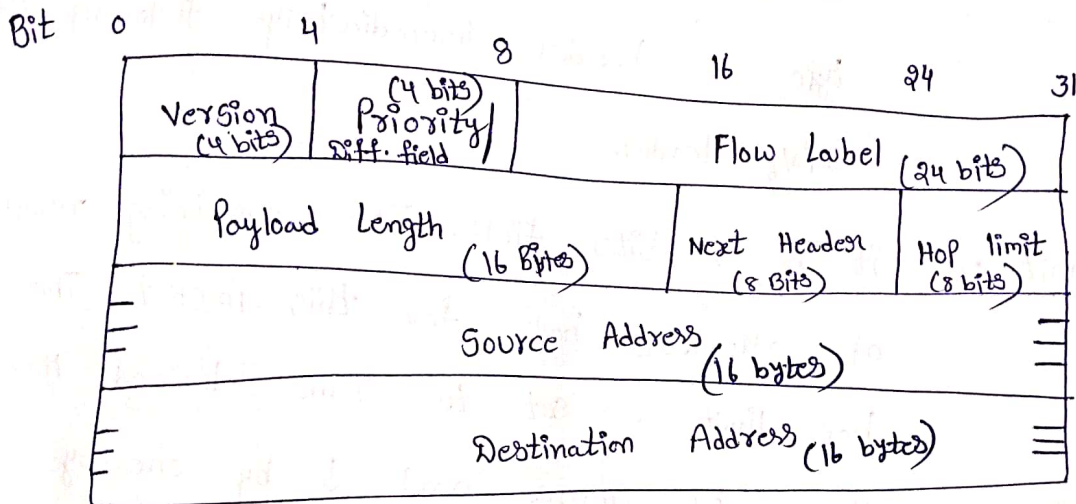 Bit 0 4 8 16 24 31
Version
(4 bits)
(4 bits)
Priority/
Diff. field
Flow Label (24 bits)
Payload Length
(16 Bytes)
Next Header
(8 Bits)
HOP limit
(8 bits)
Source Address
(16 bytes)
Destination Address (16 bytes)